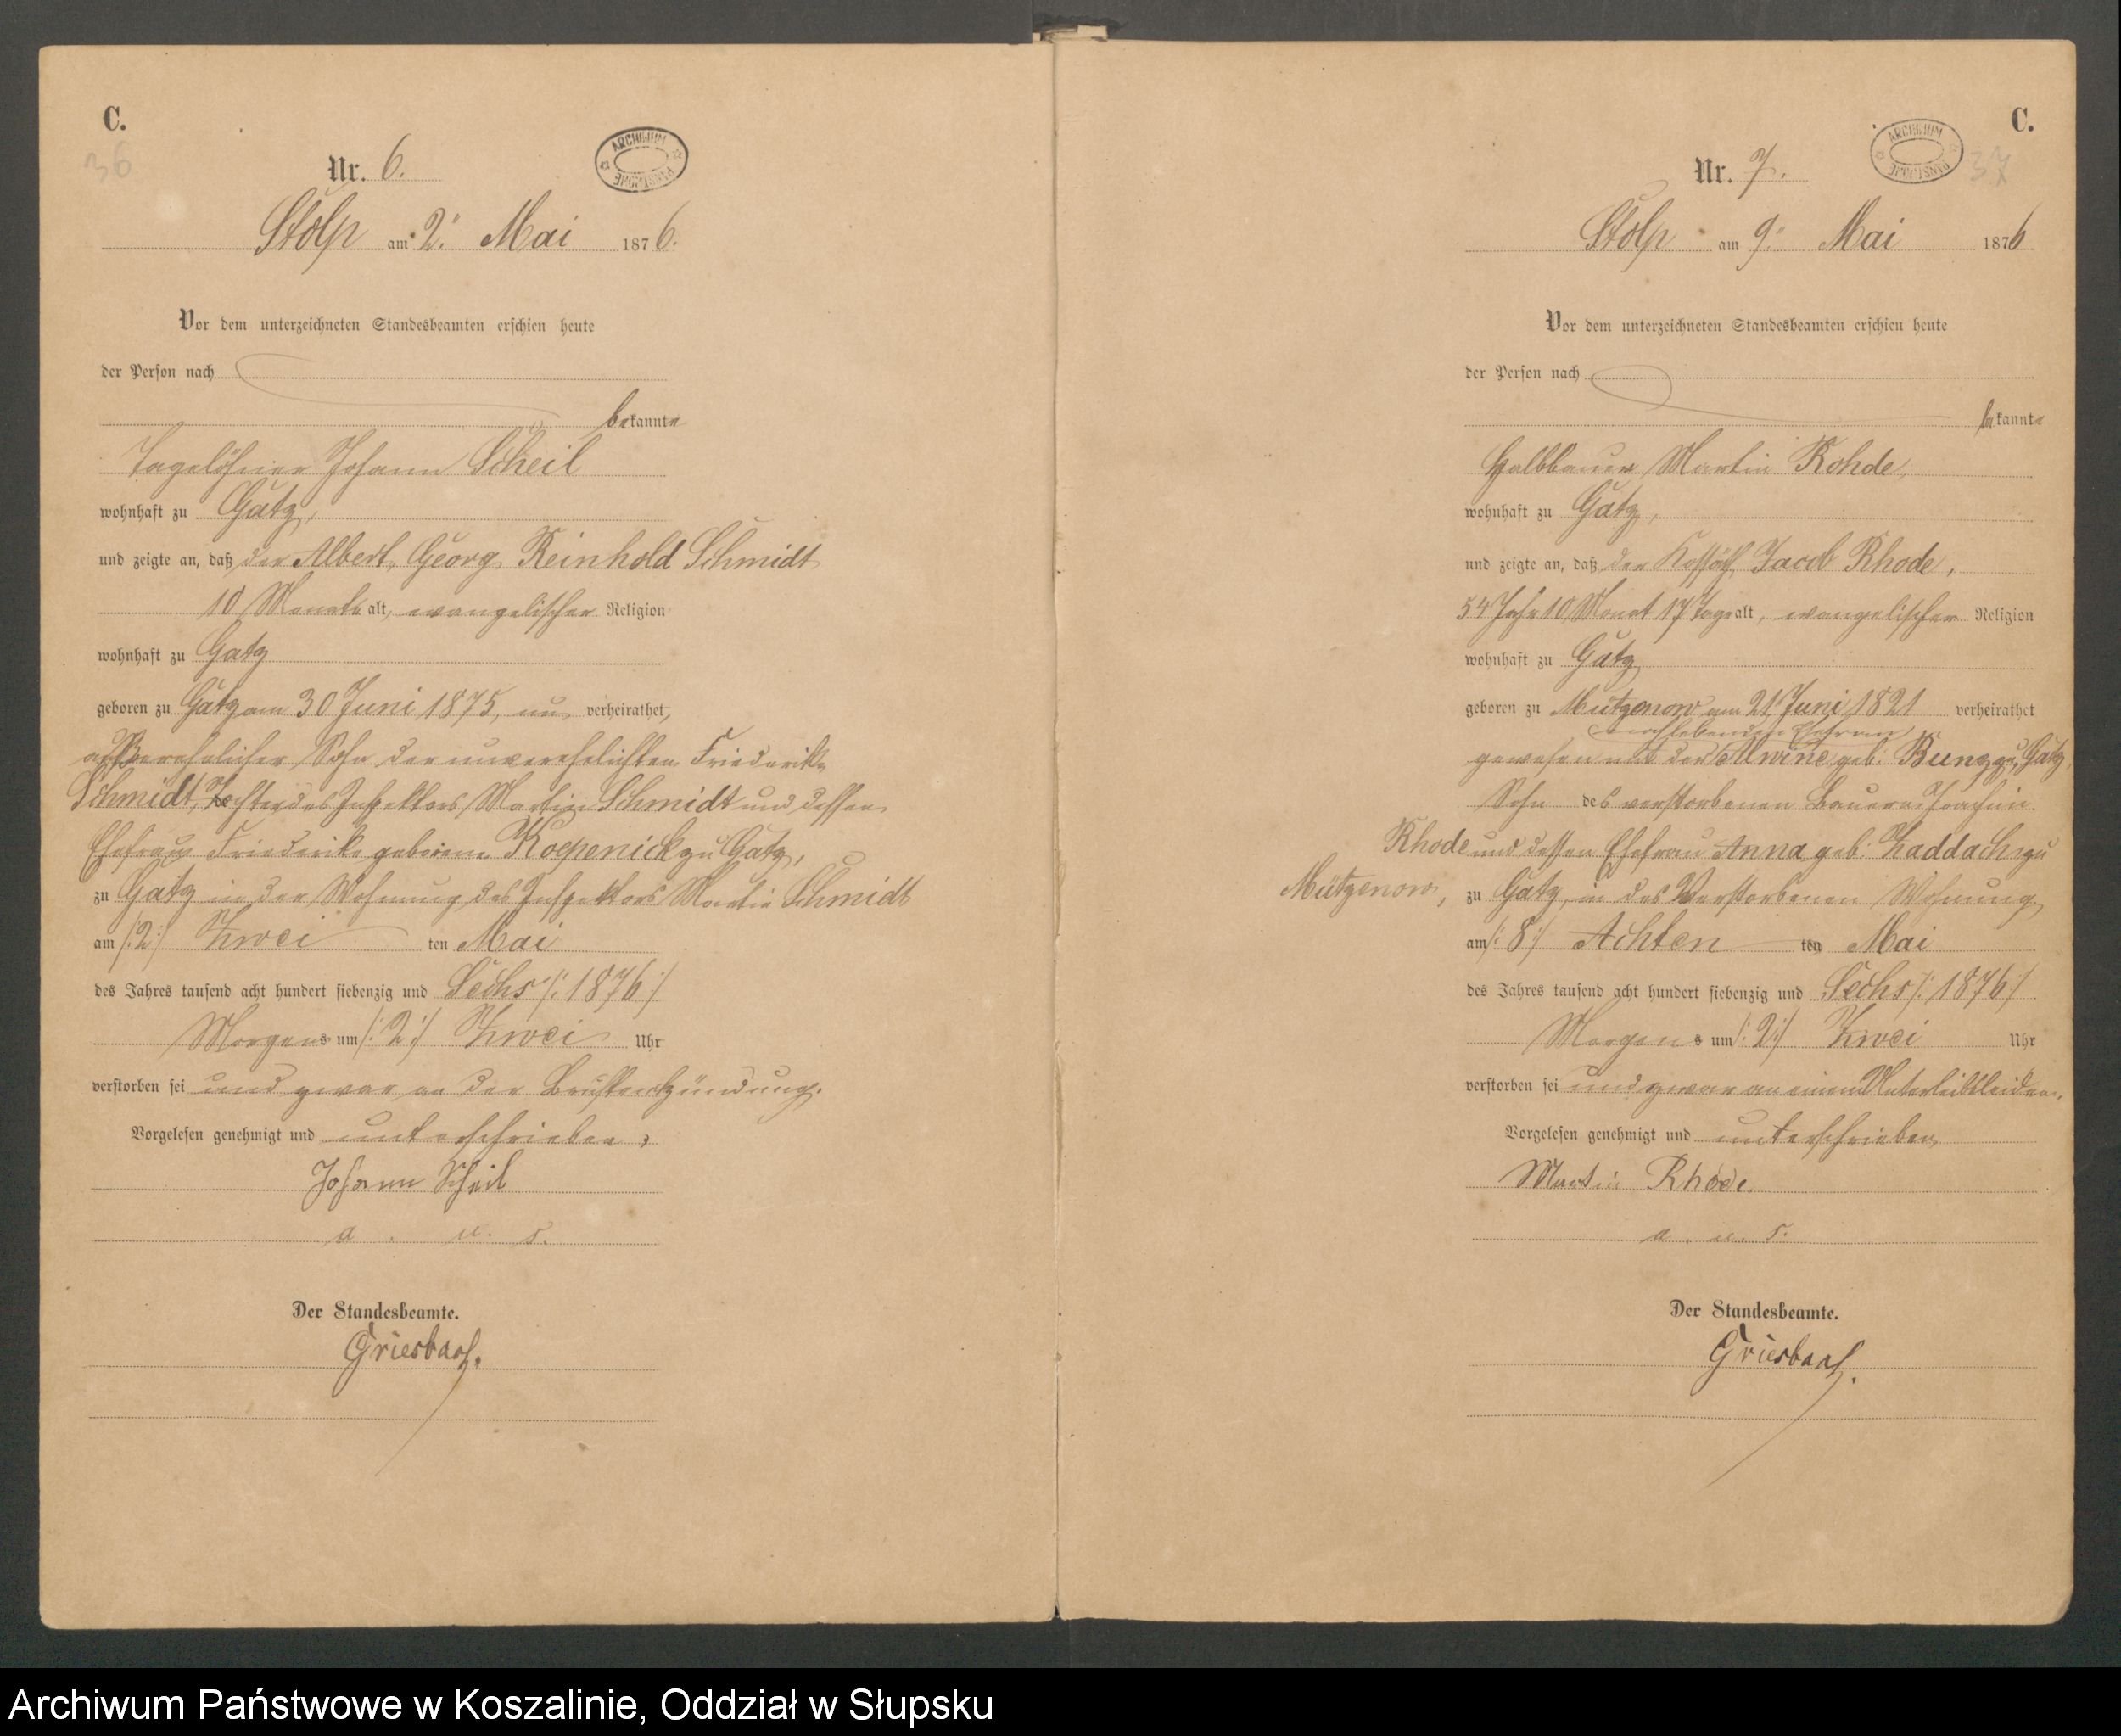 C.
36
Nr. 6.
ARCHIWUM PAŃSTWOWE
Stolp am 2. Mai 1876.
Vor dem unterzeichneten Standesbeamten erschien heute
der Person nach
bekannte
Tagelöhner Johann Scheil
wohnhaft zu Gatz,
und zeigte an, daß der Albert, Georg, Reinhold Schmidt
10 Monate alt, evangelischer Religion
wohnhaft zu Gatz
geboren zu Gatz am 30 Juni 1875, un verheirathet,
außerehelicher Sohn der unverehelichten Friederike
Schmidt, Tochter des Inspektors Martin Schmidt und dessen
Ehefrau Friederike geborene Koepenick zu Gatz,
zu Gatz in der Wohnung des Inspektors Martin Schmidt
am /:2:/ Zwei ten Mai
des Jahres tausend acht hundert siebenzig und Sechs /:1876:/
Morgens um /:2:/ Zwei Uhr
verstorben sei und zwar an der Brustentzündung.
Vorgelesen genehmigt und unterschrieben,
Johann Scheil
a. u. s.
Der Standesbeamte.
Griesbach.
C.
37
Nr. 7.
ARCHIWUM PAŃSTWOWE
Stolp am 9. Mai 1876
Vor dem unterzeichneten Standesbeamten erschien heute
der Person nach
bekannte
Halbbauer Martin Rohde,
wohnhaft zu Gatz,
und zeigte an, daß der Kossäth Jacob Rhode,
54 Jahr 10 Monat 17 Tage alt, evangelischer Religion
wohnhaft zu Gatz
geboren zu Mützenow am 21 Juni 1821 verheirathet
nachlebenden Ehefrau
gewesen mit der Alwine geb. Bunz zu Gatz,
Sohn des verstorbenen Bauern Joachim
Rhode und dessen Ehefrau Anna geb. Zaddach zu
Mützenow, zu Gatz, in des Verstorbenen Wohnung
am /:8:/ Achten ten Mai
des Jahres tausend acht hundert siebenzig und Sechs /:1876:/
Morgens um /:2:/ Zwei Uhr
verstorben sei und zwar an einem Unterleibleiden.
Vorgelesen genehmigt und unterschrieben
Martin Rhode
a. u. s.
Der Standesbeamte.
Griesbach.
Archiwum Państwowe w Koszalinie, Oddział w Słupsku